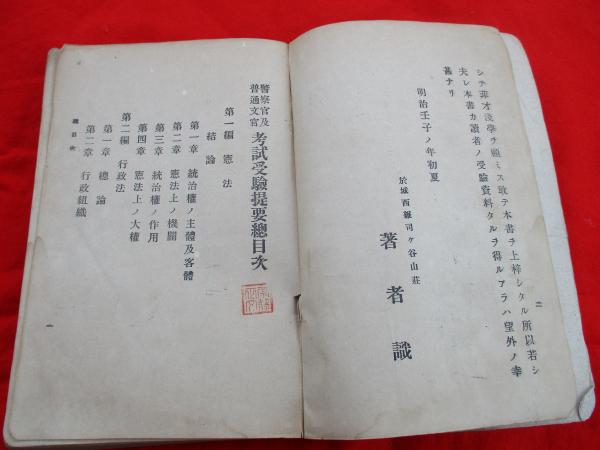 二
シテ菲才淺學ヲ顧ミス敢テ本書ヲ上梓シタル所以若シ
夫レ本書カ讀者ノ受驗資料タルヲ得ルアラハ望外ノ幸
甚ナリ
明治壬子ノ年初夏
於城西雜司ケ谷山莊
著者識
警察官及
普通文官
考試受驗提要總目次
第一編 憲法
結論
第一章 統治權ノ主體及客體
第二章 憲法上ノ機關
第三章 統治權ノ作用
第四章 憲法上ノ大權
第二編 行政法
第一章 總論
第二章 行政組織
總目次
一